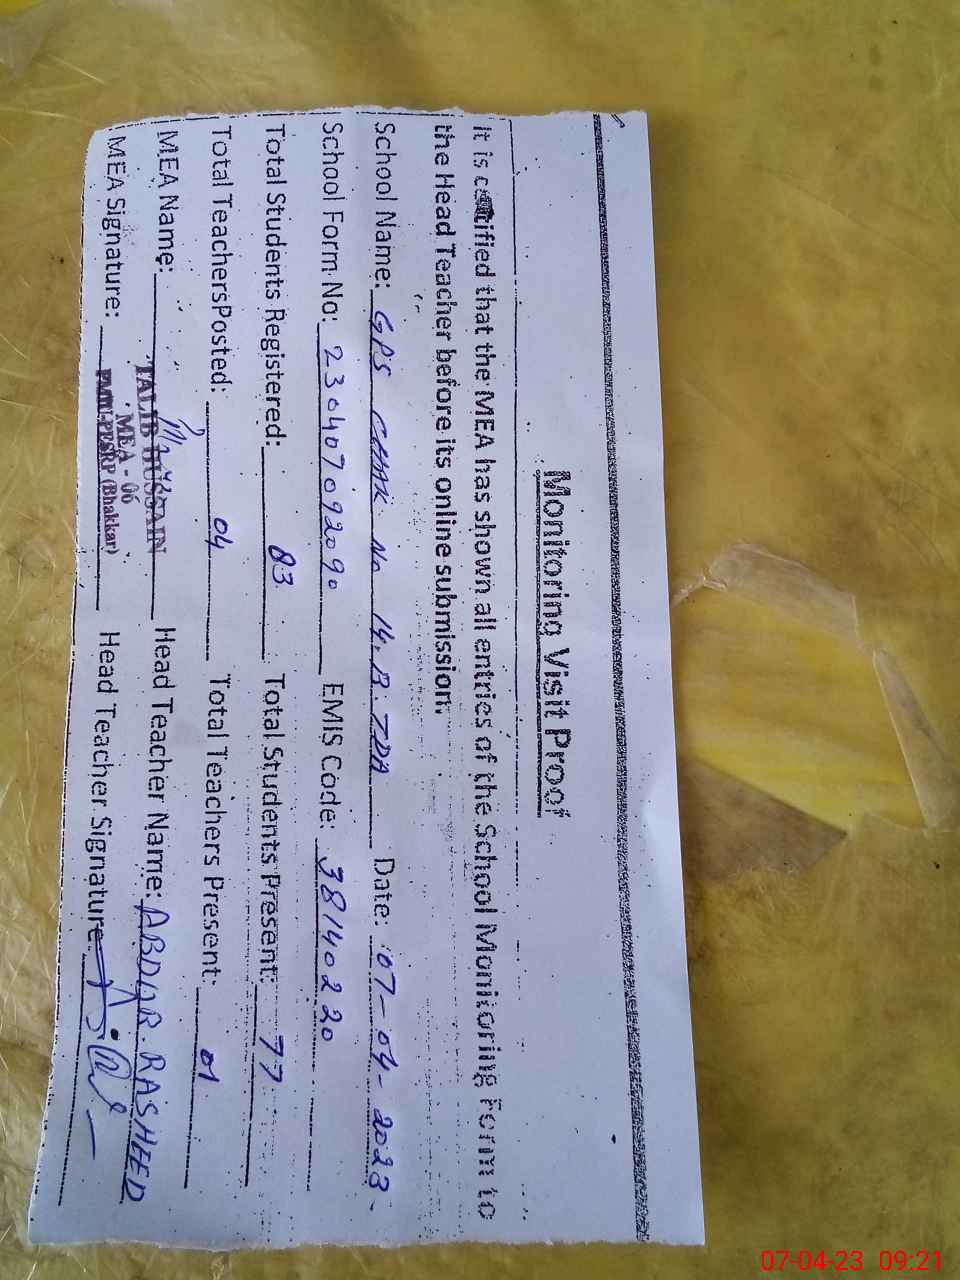 Monitoring Visit Proof
It is certified that the MEA has shown all entries of the School Monitoring Form to
the Head Teacher before its online submission.
School Name: GPS CHAK No 14. B TDA Date: 07-04-2023-
School Form No: 230407092090 EMIS Code: 38140220
Total Students Registered: 83 Total Students Present: 77
Total TeachersPosted: 04 Total Teachers Present: 01
MEA Name: Head Teacher Name: ABDUR. RASHEED
TALIB HUSSAIN
MEA - 06
PMIU-PESRP (Bhakkar)
MEA Signature: Head Teacher Signature:
07-04-23 09:21